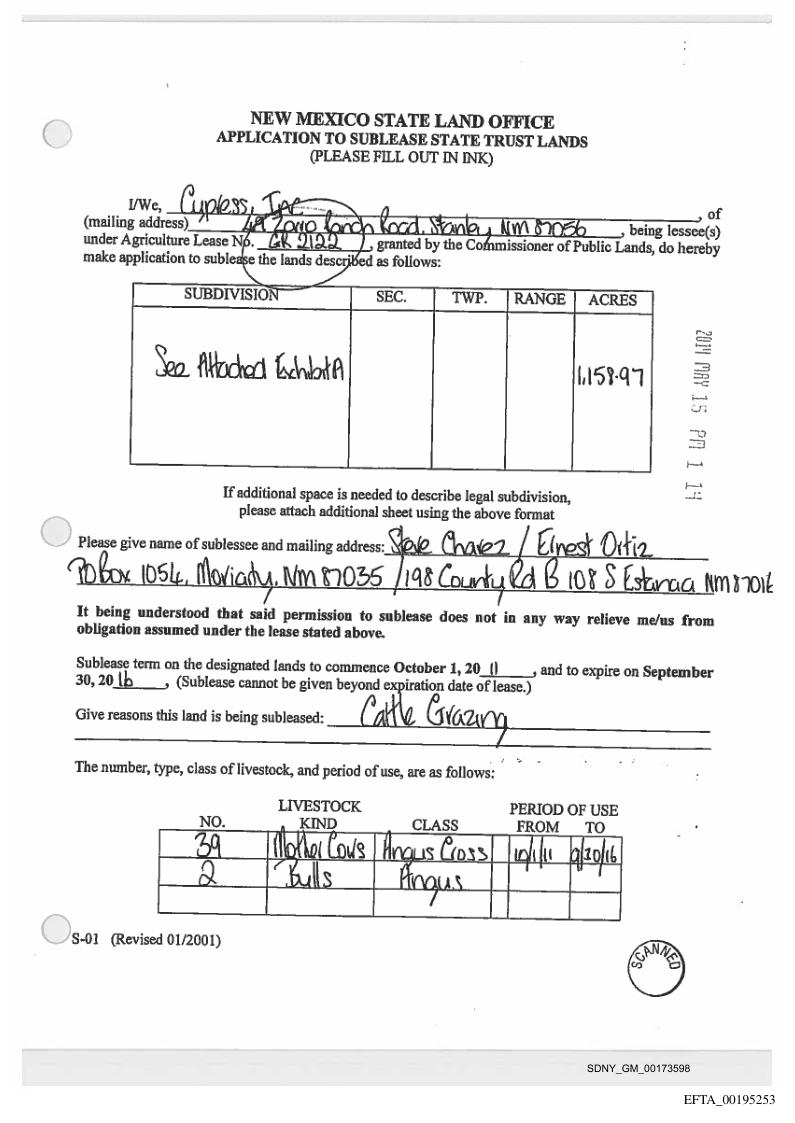 NEW MEXICO STATE LAND OFFICE
APPLICATION TO SUBLEASE STATE TRUST LANDS
(PLEASE FILL OUT IN INK)
I/We, Cypress, Inc, of
(mailing address) 49 Zorro Ranch Road, Stanley, NM 87056, being lessee(s)
under Agriculture Lease No. GR 2122, granted by the Commissioner of Public Lands, do hereby
make application to sublease the lands described as follows:
SUBDIVISION SEC. TWP. RANGE ACRES
See Attached Exhibit A 1,158.97
2014 MAY 15 PM 1 14
If additional space is needed to describe legal subdivision,
please attach additional sheet using the above format
Please give name of sublessee and mailing address: Steve Chavez / Ernest Ortiz
PO Box 1054, Moriarty, NM 87035 / 198 County Rd B 108 S Estancia NM 87016
It being understood that said permission to sublease does not in any way relieve me/us from
obligation assumed under the lease stated above.
Sublease term on the designated lands to commence October 1, 20 11, and to expire on September
30, 20 16, (Sublease cannot be given beyond expiration date of lease.)
Give reasons this land is being subleased: Cattle Grazing
The number, type, class of livestock, and period of use, are as follows:
LIVESTOCK PERIOD OF USE
NO. KIND CLASS FROM TO
39 Mother Cows Angus Cross 10/1/11 9/30/16
2 Bulls Angus
S-01 (Revised 01/2001)
SCANNED
SDNY_GM_00173598
EFTA_00195253